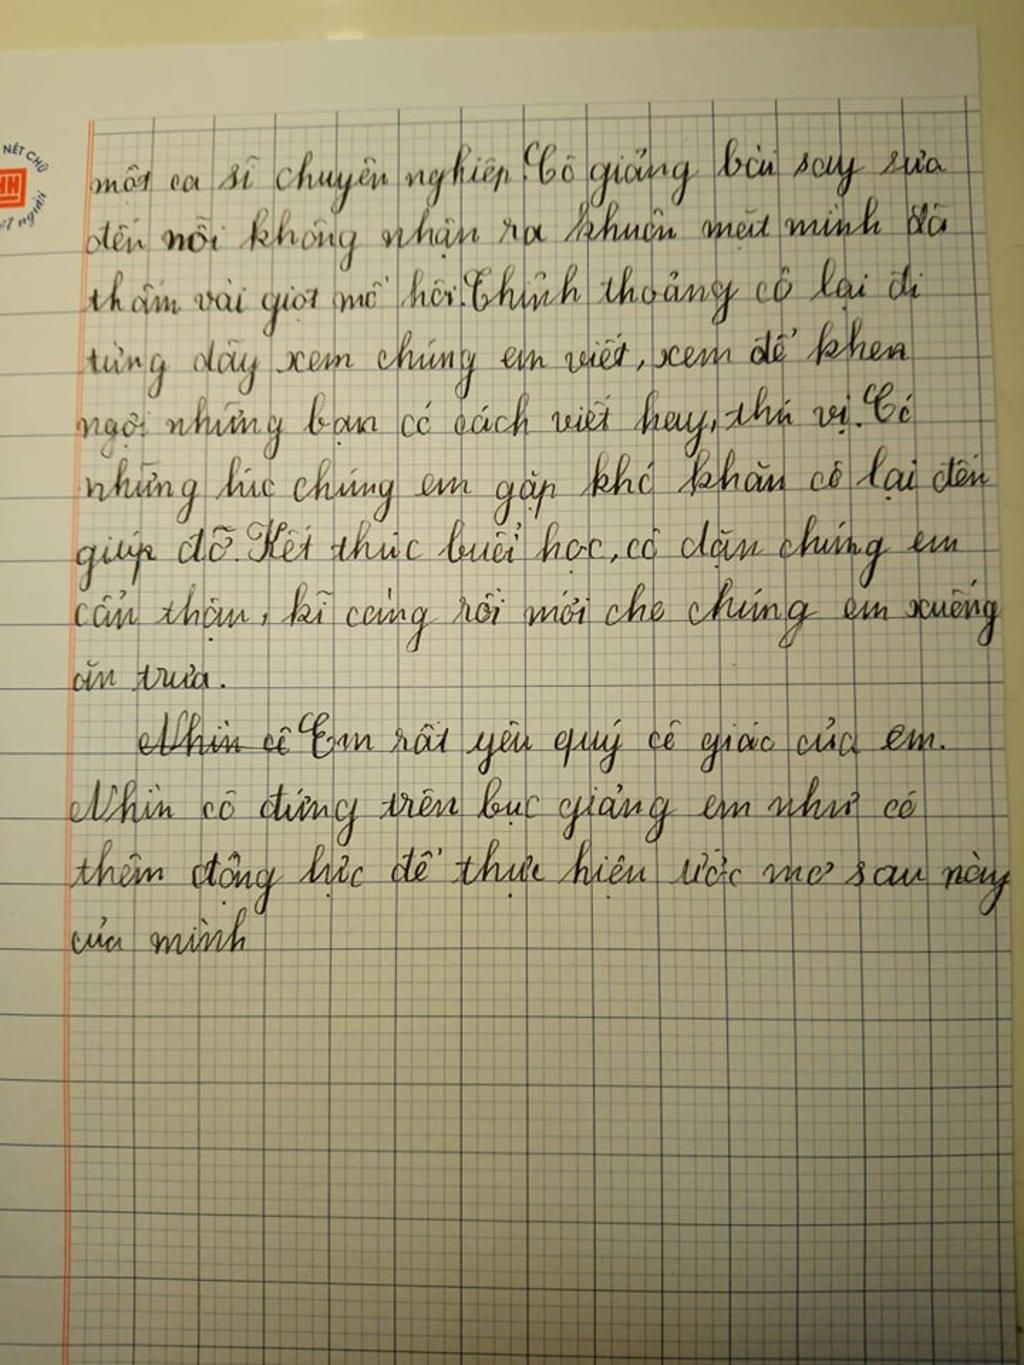 NÉT CHỮ
HH
người
một ca sĩ chuyên nghiệp. Cô giảng bài say sưa
đến nỗi không nhận ra khuôn mặt mình đã
thấm vài giọt mồ hôi. Thỉnh thoảng cô lại đi
từng dãy xem chúng em viết, xem để khen
ngợi những bạn có cách viết hay, thú vị. Có
những lúc chúng em gặp khó khăn cô lại đến
giúp đỡ. Kết thúc buổi học, cô dặn chúng em
cẩn thận, kĩ càng rồi mới cho chúng em xuống
ăn trưa.
Nhìn cô Em rất yêu quý cô giáo của em.
Nhìn cô đứng trên bục giảng em như có
thêm động lực để thực hiện ước mơ sau này
của mình